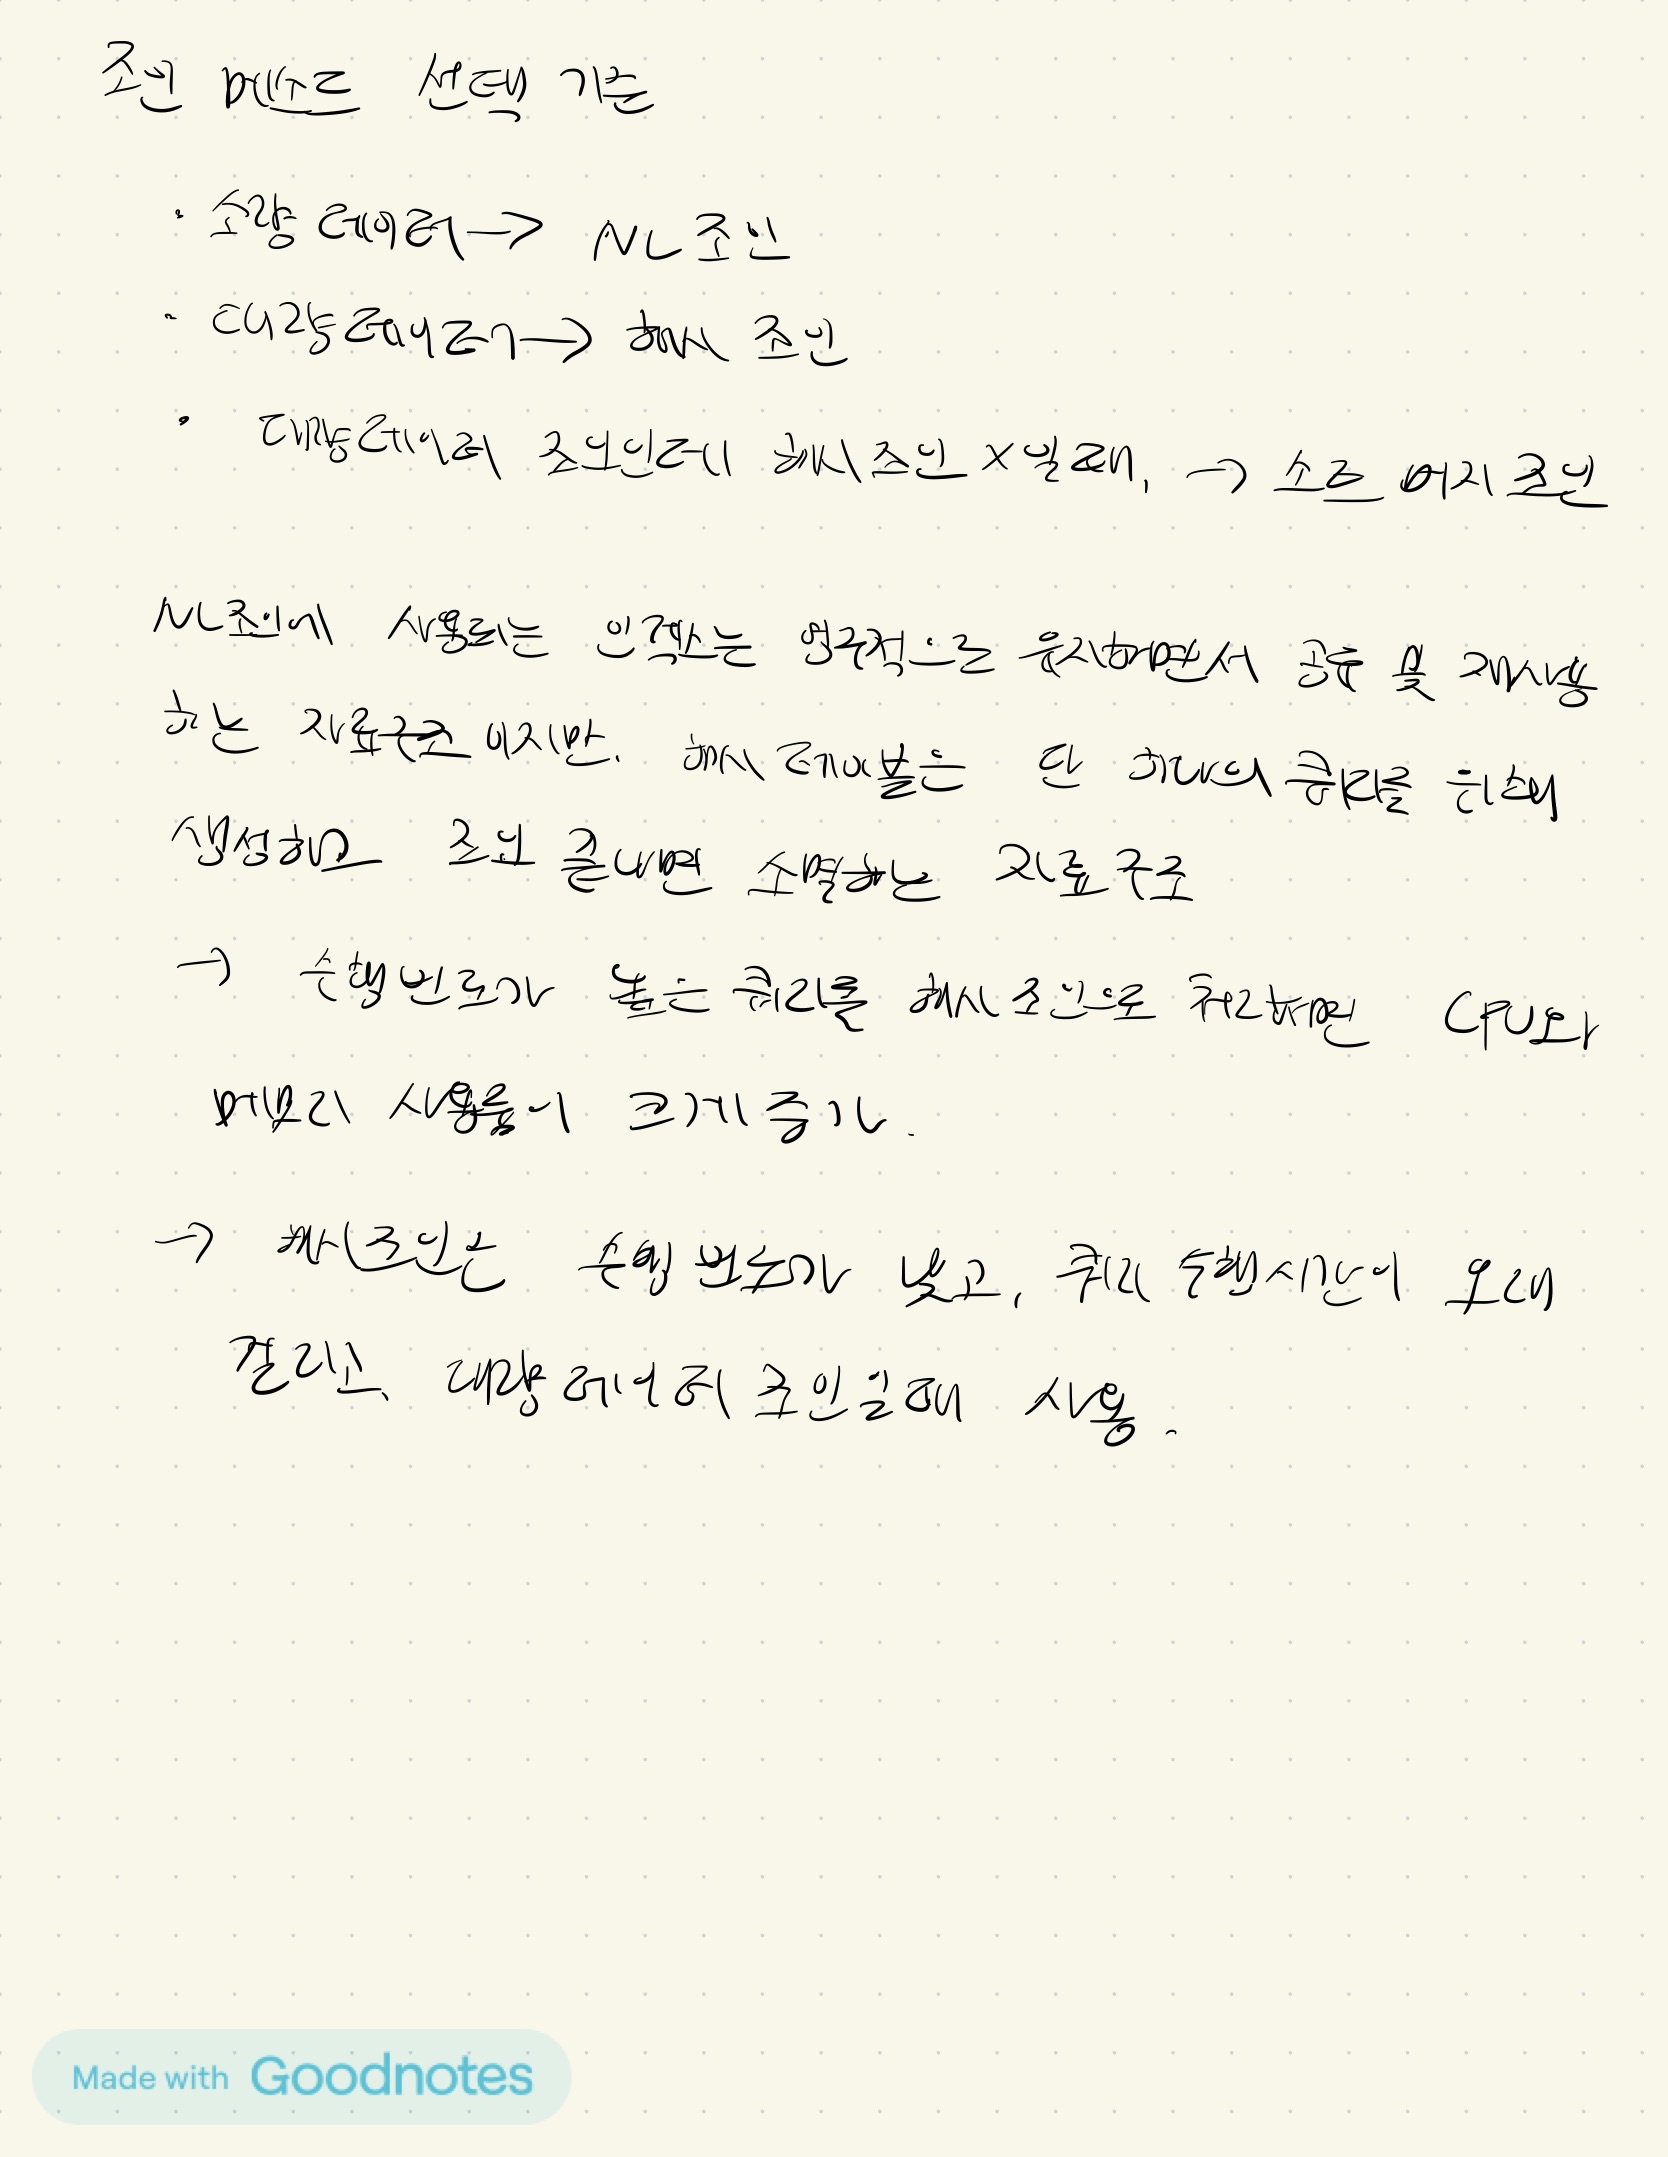 조인 메소드 선택 기준
· 소량 데이터 → NL 조인
· 대량 데이터 → 해시 조인
· 대량 데이터 조인인데 해시 조인 X일 때, → 소트 머지 조인
NL조인에 사용되는 인덱스는 영구적으로 유지하면서 공유 및 재사용
하는 자료구조 이지만, 해시 테이블은 단 하나의 쿼리를 위해
생성하고 조인 끝나면 소멸하는 자료 구조
→ 수행 빈도가 높은 쿼리를 해시 조인으로 처리하면 CPU와
메모리 사용률이 크게 증가.
→ 해시조인은 수행 빈도가 낮고, 쿼리 수행시간이 오래
걸리고, 대량 데이터 조인일때 사용.
Made with Goodnotes